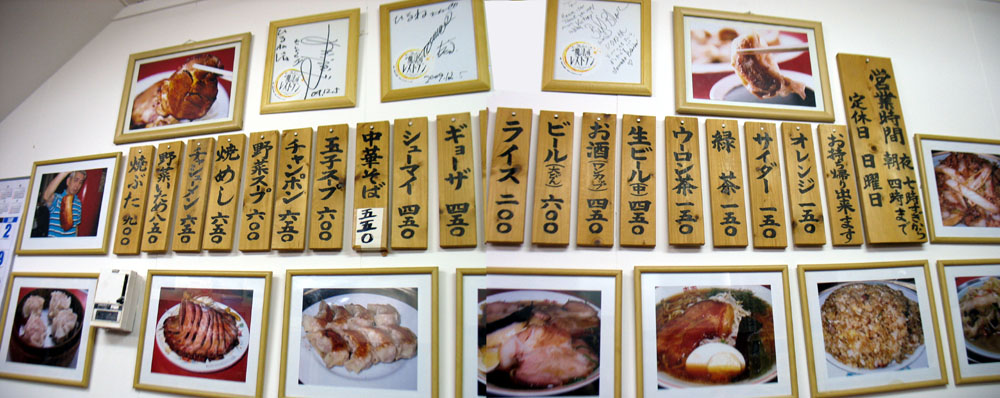 営業時間 夜 七時半から
朝 四時まで
定休日 日曜日
お持ち帰り出来ます
オレンジ 一五〇
サイダー 一五〇
緑茶 一五〇
ウーロン茶 一五〇
生ビール(中) 四五〇
お酒(ワンカップ) 四五〇
ビール(大びん) 六〇〇
ライス 二〇〇
ギョーザ 四五〇
シューマイ 四五〇
中華そば 五五〇
玉子スープ 六〇〇
チャンポン 六〇〇
野菜スープ 六〇〇
焼めし 六五〇
チャーシューメン
野菜いため 八五〇
焼ぶた 九〇〇
レストラン
2009.12.5
レストラン
レストラン
2
9